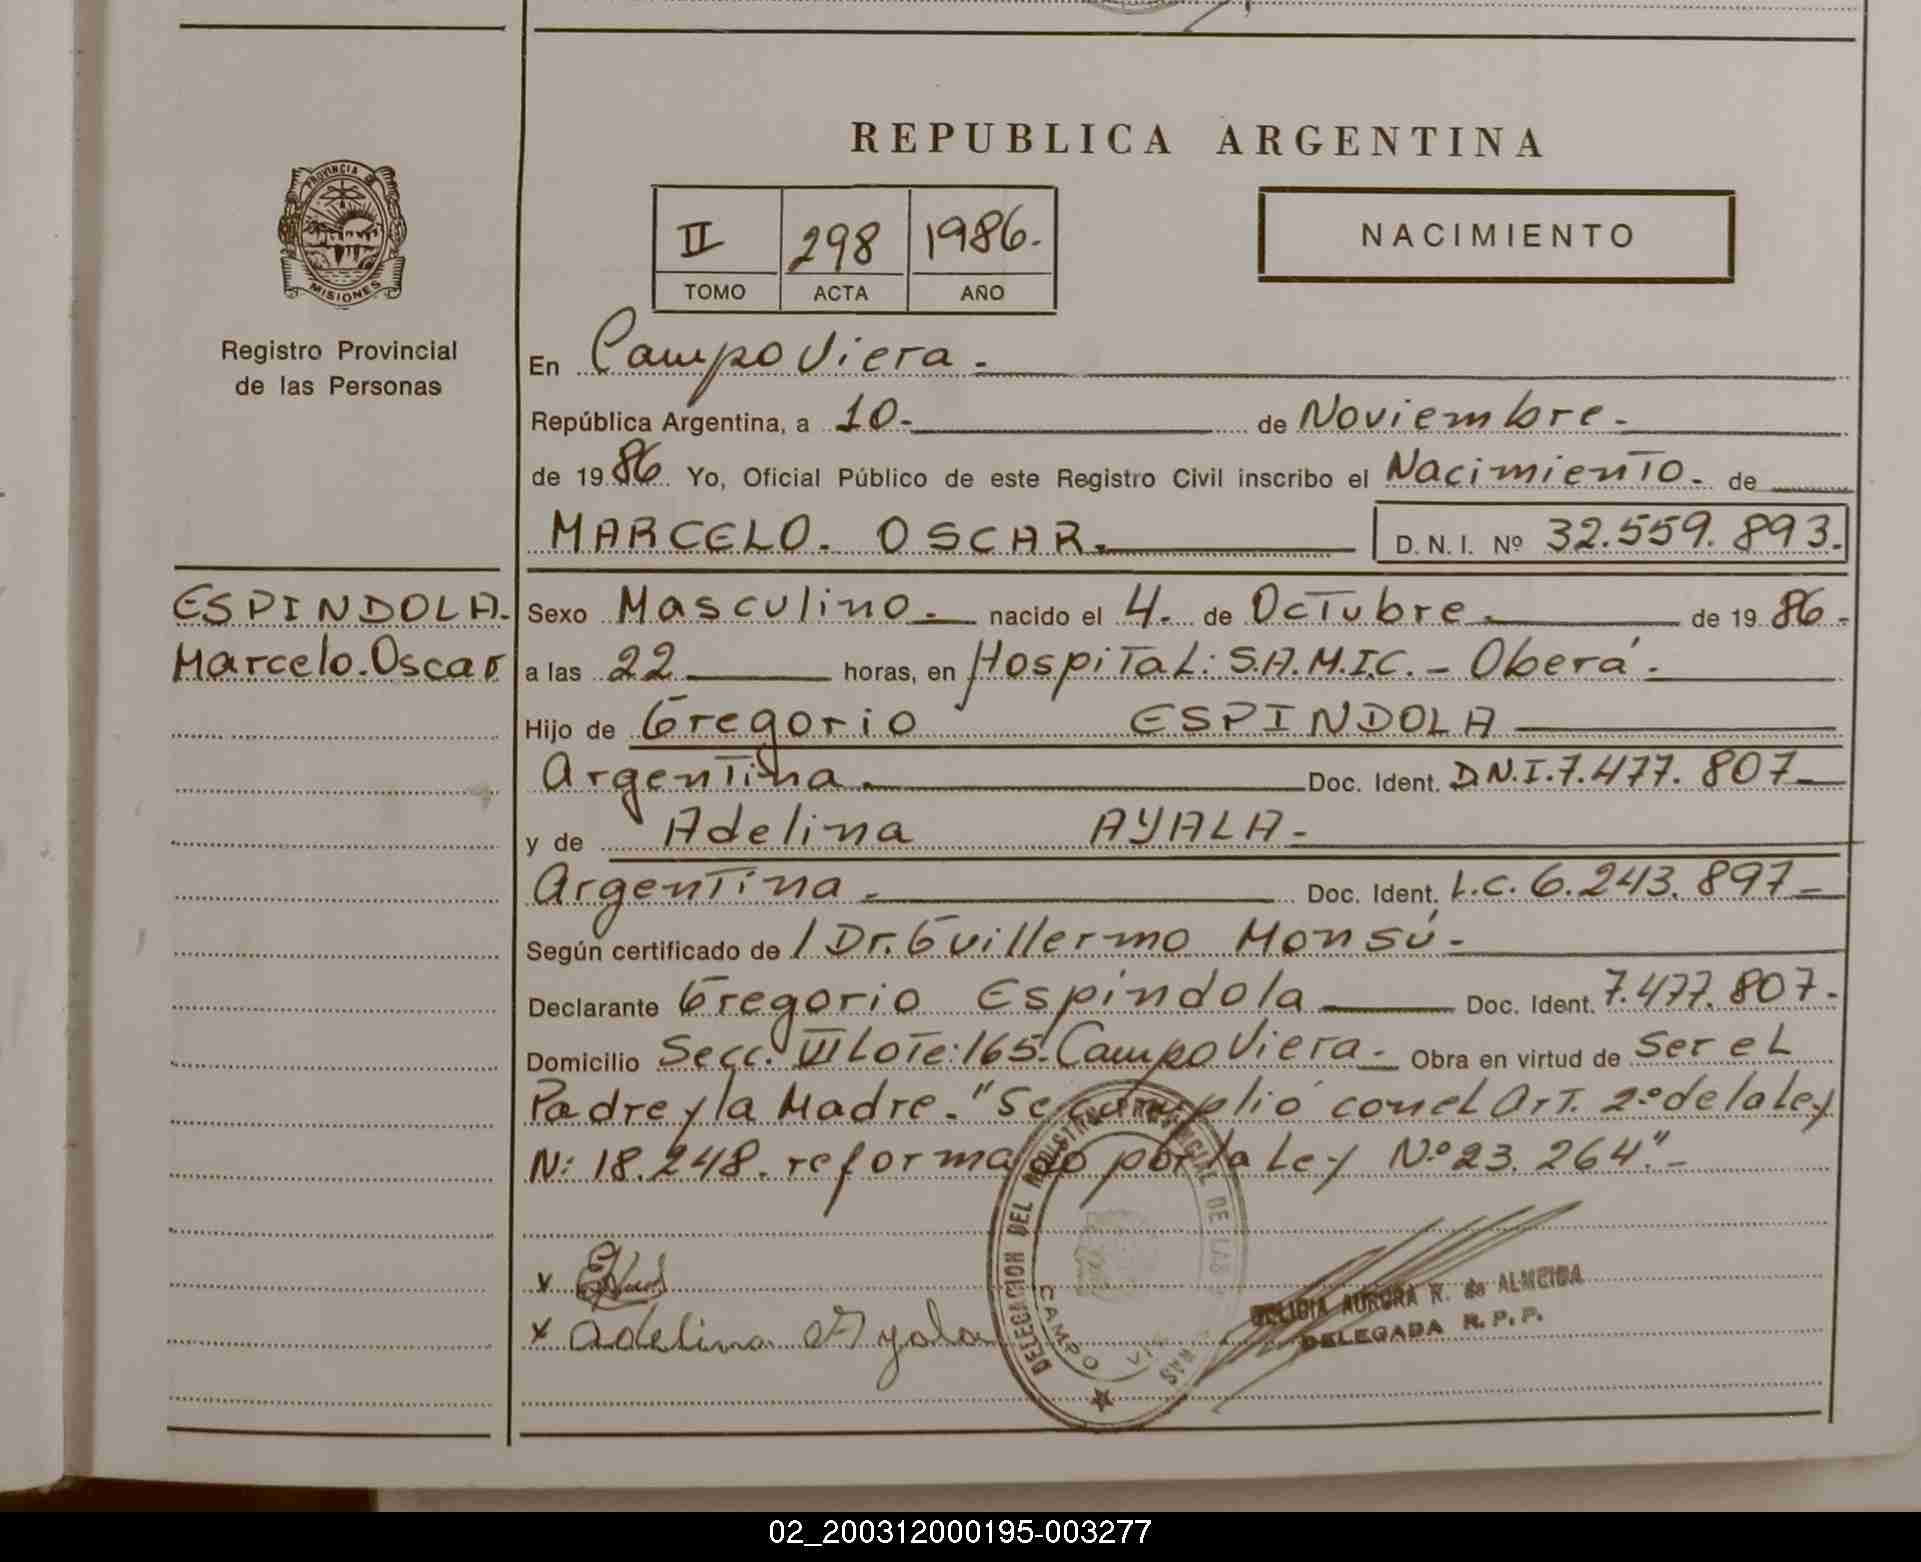 REPUBLICA ARGENTINA
PROVINCIA DE
MISIONES
Registro Provincial
de las Personas
II 298 1986.
TOMO ACTA AÑO
NACIMIENTO
En Campo Viera.
República Argentina, a 10. de Noviembre.
de 1986 Yo, Oficial Público de este Registro Civil inscribo el Nacimiento. de
MARCELO. OSCAR. D. N. I. Nº 32.559.893.
ESPINDOLA.
Marcelo.Oscar
Sexo Masculino. nacido el 4. de Octubre. de 1986.
a las 22 horas, en Hospital: S.A.M.I.C. - Oberá.
Hijo de Gregorio ESPINDOLA
Argentina. Doc. Ident. D.N.I. 7.477.807
y de Adelina AYALA-
Argentina. Doc. Ident. L.C. 6.243.897
Según certificado de / Dr. Guillermo Monsú-
Declarante Gregorio Espindola Doc. Ident. 7.477.807.
Domicilio Secc. III Lote: 165. Campo Viera. Obra en virtud de Ser el
Padre y la Madre. "Se cumplió con el Art. 2º de la Ley
N: 18.248. reformado por la Ley Nº 23.264."-
x
x Adelina Ayala
DELEGACION DEL REGISTRO PROVINCIAL DE LAS
CAMPO
DELICIA AURORA R. de ALMEIDA
DELEGADA R. P. P.
02_200312000195-003277